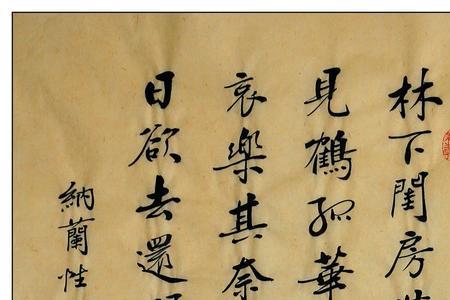 林下閨房
見鶴孤華
哀樂其奈
日欲去還
納蘭性